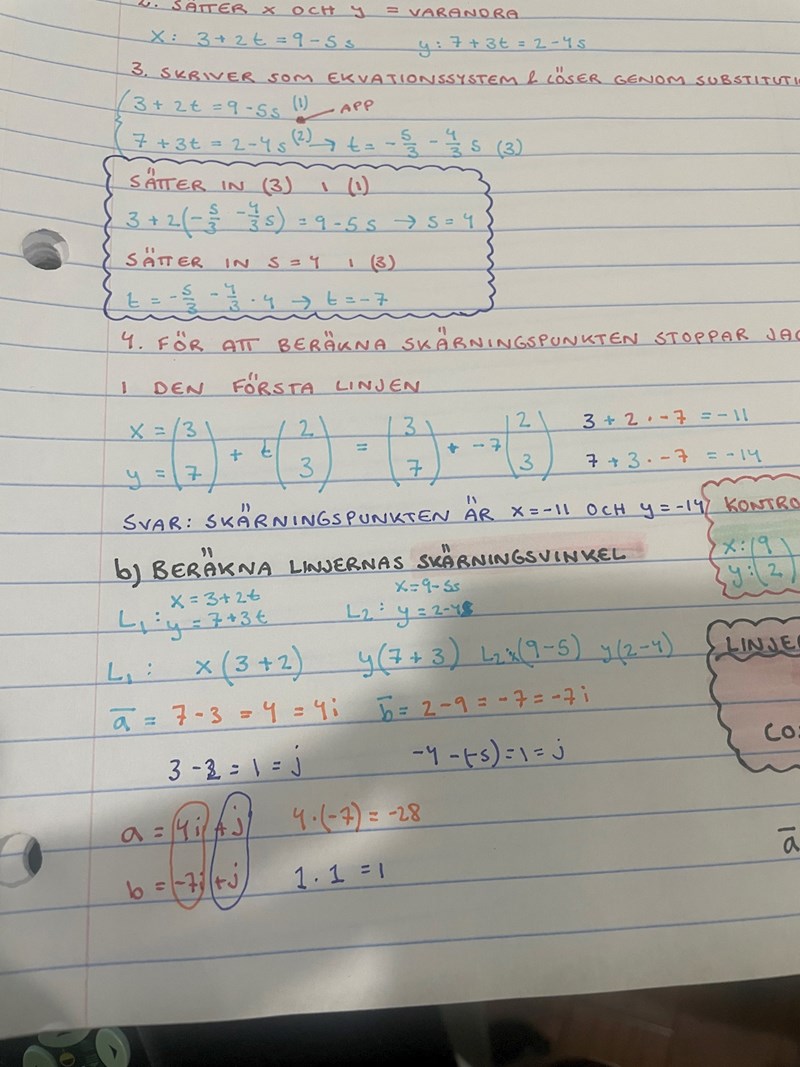 2. SÄTTER X OCH Y = VARANDRA
X: 3+2t=9-5s y: 7+3t=2-4s
3. SKRIVER SOM EKVATIONSSYSTEM & LÖSER GENOM
3+2t=9-5s (1) APP
7+3t=2-4s (2) → t=-5/3 -4/3 s (3)
SÄTTER IN (3) I (1)
3+2(-5/3 -4/3 s) = 9-5s → s=4
SÄTTER IN s=4 I (3)
t=-5/3 -4/3 · 4 → t=-7
4. FÖR ATT BERÄKNA SKÄRNINGSPUNKTEN STOPPAR
I DEN FÖRSTA LINJEN
x = (3 + t (2 = (3 + -7 (2 3+2·-7=-11
y = 7) 3) 7) 3) 7+3·-7=-14
SVAR: SKÄRNINGSPUNKTEN ÄR X=-11 OCH Y=-14
KONTRO
x: (9
y: (2)
b) BERÄKNA LINJERNAS SKÄRNINGSVINKEL
L1: x=3+2t L2: x=9-5s
y=7+3t y=2-4s
L1: x(3+2) y(7+3) L2: x(9-5) y(2-4)
LINJE
a = 7-3 = 4 = 4i b = 2-9 = -7 = -7i
3-2=1=j -4-(-5)=1=j
CO
a = 4i +j 4·(-7) = -28
a
b = -7i +j 1·1 =1